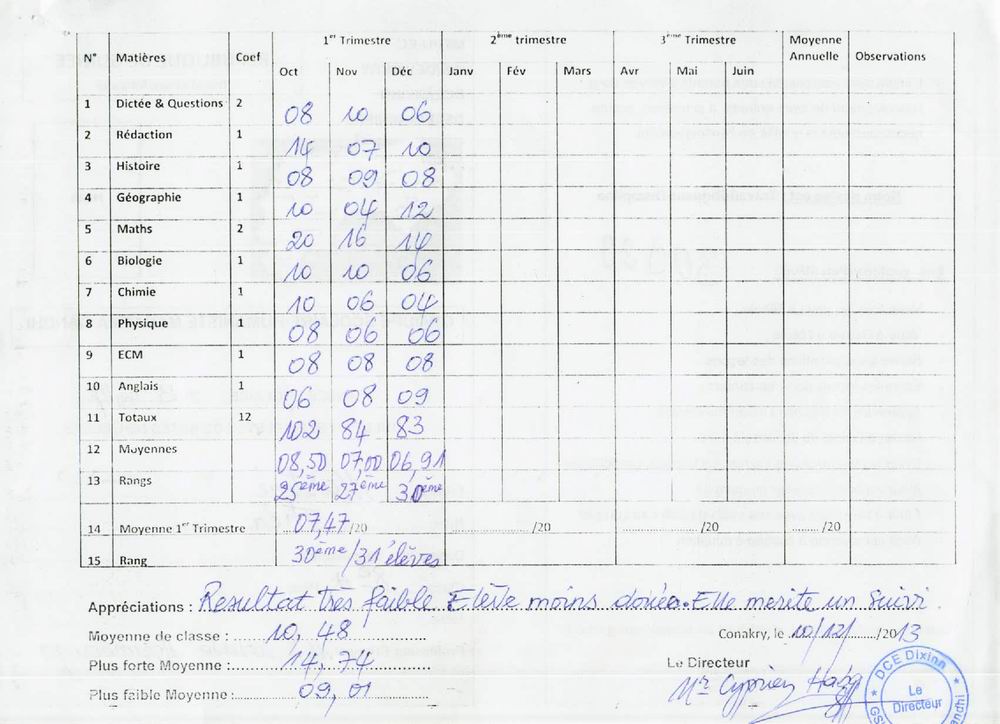 N° Matières Coef 1er Trimestre 2ème trimestre 3ème Trimestre Moyenne Annuelle Observations
Oct Nov Déc Janv Fév Mars Avr Mai Juin
1 Dictée & Questions 2 08 10 06
2 Rédaction 1 14 07 10
3 Histoire 1 08 09 08
4 Géographie 1 10 04 12
5 Maths 2 20 16 14
6 Biologie 1 10 10 06
7 Chimie 1 10 06 04
8 Physique 1 08 06 06
9 ECM 1 08 08 08
10 Anglais 1 06 08 09
11 Totaux 12 102 84 83
12 Moyennes 08,50 07,00 06,91
13 Rangs 25ème 27ème 30ème
14 Moyenne 1er Trimestre 07,47/20 /20 /20 /20
15 Rang 30ème/31 élèves
Appréciations : Resultat très faible Elève moins douée. Elle merite un suivi.
Moyenne de classe : 10,48
Conakry, le 10/12/2013
Plus forte Moyenne : 14,74
Le Directeur
Plus faible Moyenne : 09,01
Mr Cyprien
DCE Dixinn
Le Directeur